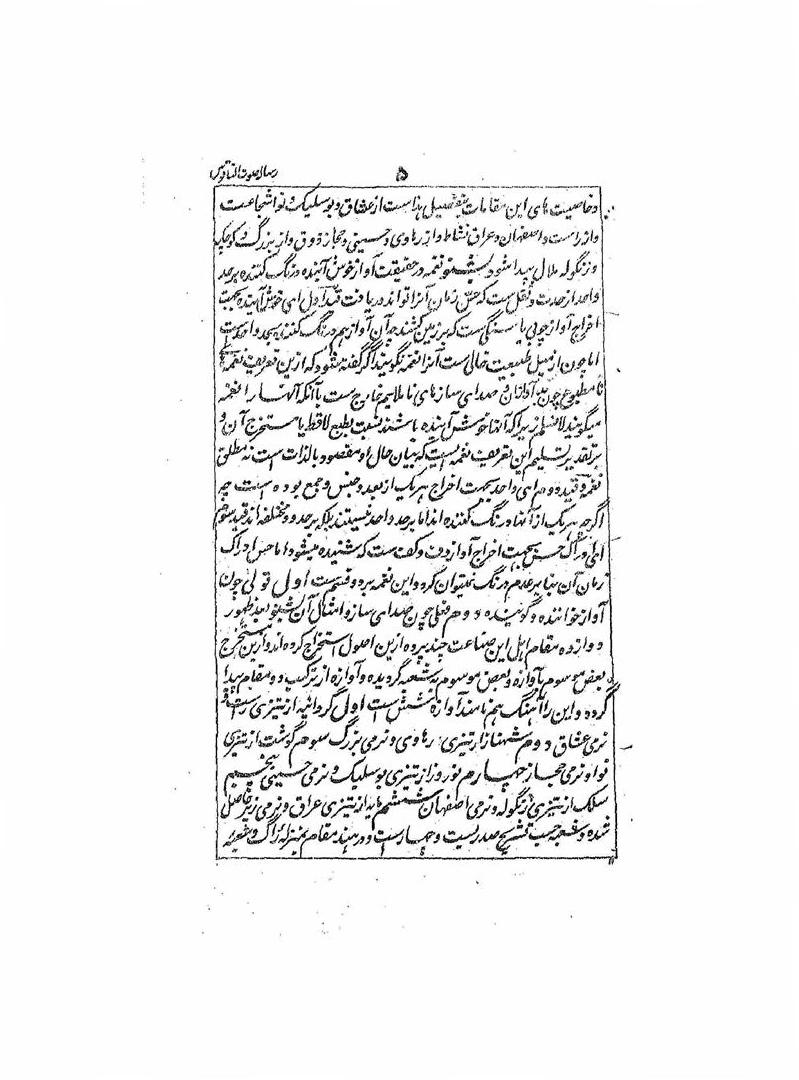 ۵
رساله صوت الناقوس
و خاصیت های این مقامات بتفصیل هذاست از عشاق و بوسلیک و نوا شجاعت
و از راست و اصفهان و عراق نشاط و از رهاوی و حسینی و حجاز ذوق و از بزرگ و کوچک
و زنگوله ملال پیدا شود بشنو نغمه در حقیقت آواز خوش آینده درنگ کننده بر حد
واحد از حدت و ثقل ست که حس زمان آنرا تواند دریافت قید اول ای خوش آینده بجهت
اخراج آواز چوبی یا سنگی ست که بر زمین کشند چه آن آواز هم درنگ کننده بحد واحد است
اما چون از میل طبیعت خالی ست آنرا نغمه نگویند اگر گفته شود که ازین تعریف نغمه
نامطبوع چون آواز آن و صدای سازهای ناملایم خارج ست با آنکه آنها را نغمه
میگویند لانسلم زیرا که آنها خوش آینده باشند نسبت بطبع لافظ یا مستخرج آن و
بر تقدیر تسلیم این تعریف نغمه ایست که بیان حال او مقصود بالذات است نه مطلق
نغمه و قید دوم ای واحد بجهت اخراج هر یک از بعد و جنس و جمع بوده است چه
اگرچه هر یک از آنها درنگ کننده اند اما بر حد واحد نیستند بلکه بر حدود مختلفه اند قید سوم
ای ادراک حس بجهت اخراج آواز دف و کف ست که شنیده میشود اما حس ادراک
زمان آن بنا بر عدم درنگ نمیتوان کرد و این نغمه بر دو قسم ست اول قولی چون
آواز خواننده و گوینده دوم فعلی چون صدای ساز و امثال آن بشنو بعد ظهور
دوازده مقام اهل این صناعت چند پرده ازین اصول استخراج کرده اند و ازین مستخرج
بعض موسوم بآوازه و بعض موسوم بشعبه گردیده و آوازه از ترکیب دو مقام پیدا
گردد و این را آهنگ هم نامند آوازه شش است اول گردانیه از تیزی راست و
نرمی عشاق دوم شهناز از تیزی رهاوی و نرمی بزرگ سوم گوشت از تیزی
نوا و نرمی حجاز چهارم نوروز از تیزی بوسلیک و نرمی حسینی پنجم
سلمک از تیزی زنگوله و نرمی اصفهان ششم مایه از تیزی عراق و نرمی زیر حاصل
شده و شعبه حسب تشریح صدر بیست و چهار ست و در هند مقام بمنزله راگ و شعبه